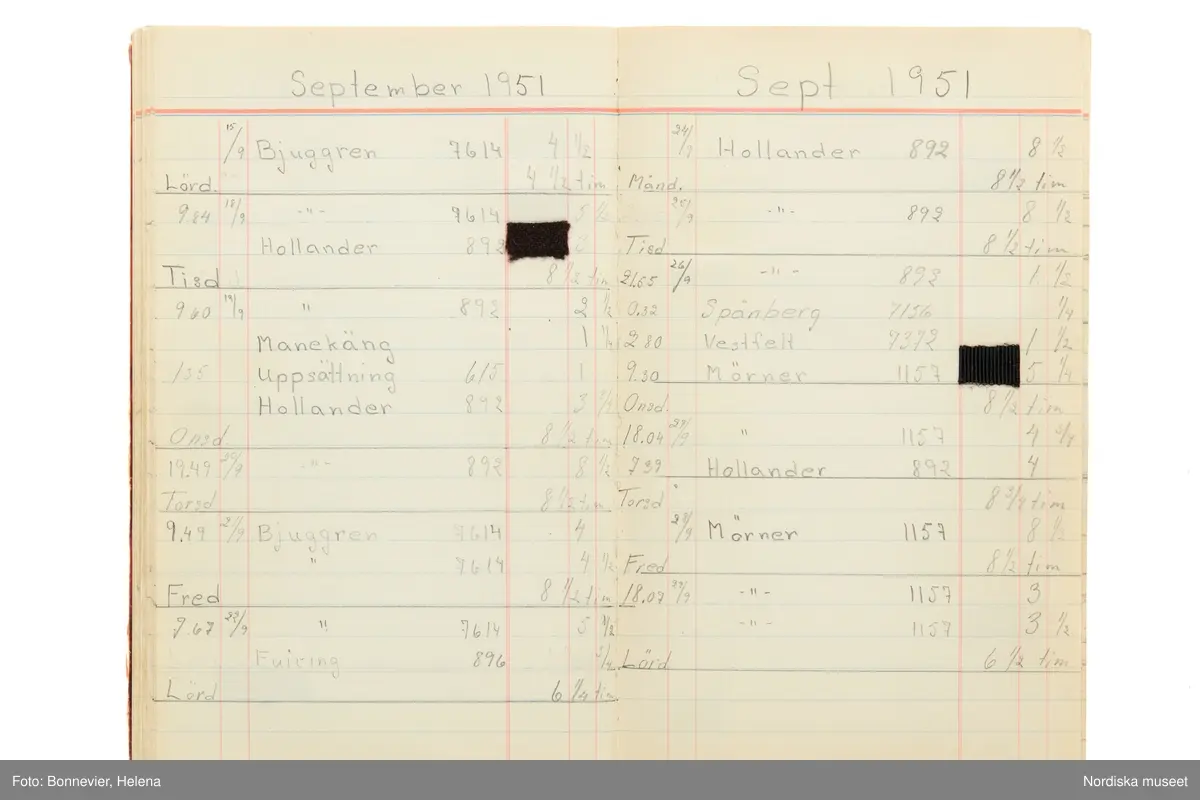 September 1951
15/9 Bjuggren 7614 4 1/2
Lörd. 4 1/2 tim
9.84 18/9 -"- 7614 5 1/2
Hollander 892
Tisd 8 1/2 tim
9.60 19/9 " 892 2 1/2
Manekäng 1 1/4
1.35 Uppsättning 615 1
Hollander 892 3 3/4
Onsd. 8 1/2 tim
19.49 20/9 -"- 892 8 1/2
Torsd 8 1/2 tim
9.49 21/9 Bjuggren 7614 4
" 7614 4 1/2
Fred 8 1/2 tim
9.67 22/9 " 7614 5 1/2
896 3/4
Lörd 6 1/4 tim
Sept 1951
24/9 Hollander 892 8 1/2
Månd. 8 1/2 tim
25/9 -"- 892 8 1/2
Tisd 8 1/2 tim
21.65 26/9 -"- 892 1 1/2
0.32 Spånberg 7156 1/4
2.80 Vestfelt 7372 1 1/2
9.30 Mörner 1157 5 1/4
Onsd. 8 1/2 tim
18.04 27/9 " 1157 4 3/4
7.39 Hollander 892 4
Torsd 8 3/4 tim
28/9 Mörner 1157 8 1/2
Fred 8 1/2 tim
18.07 29/9 -"- 1157 3
-"- 1157 3 1/2
Lörd 6 1/2 tim
Foto: Bonnevier, Helena
Nordiska museet